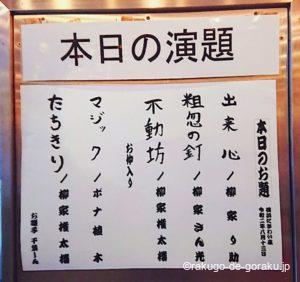 本日の演題
本日のお題
横浜にぎわい座
令和二年八月十三日
出来心/柳家り助
粗忽の釘/柳家さん光
不動坊/柳家権太楼
お仲入り
マジック/ボナ植木
たちきり/柳家権太楼
お囃子 千葉しん
©rakugo-de-goraku.jp